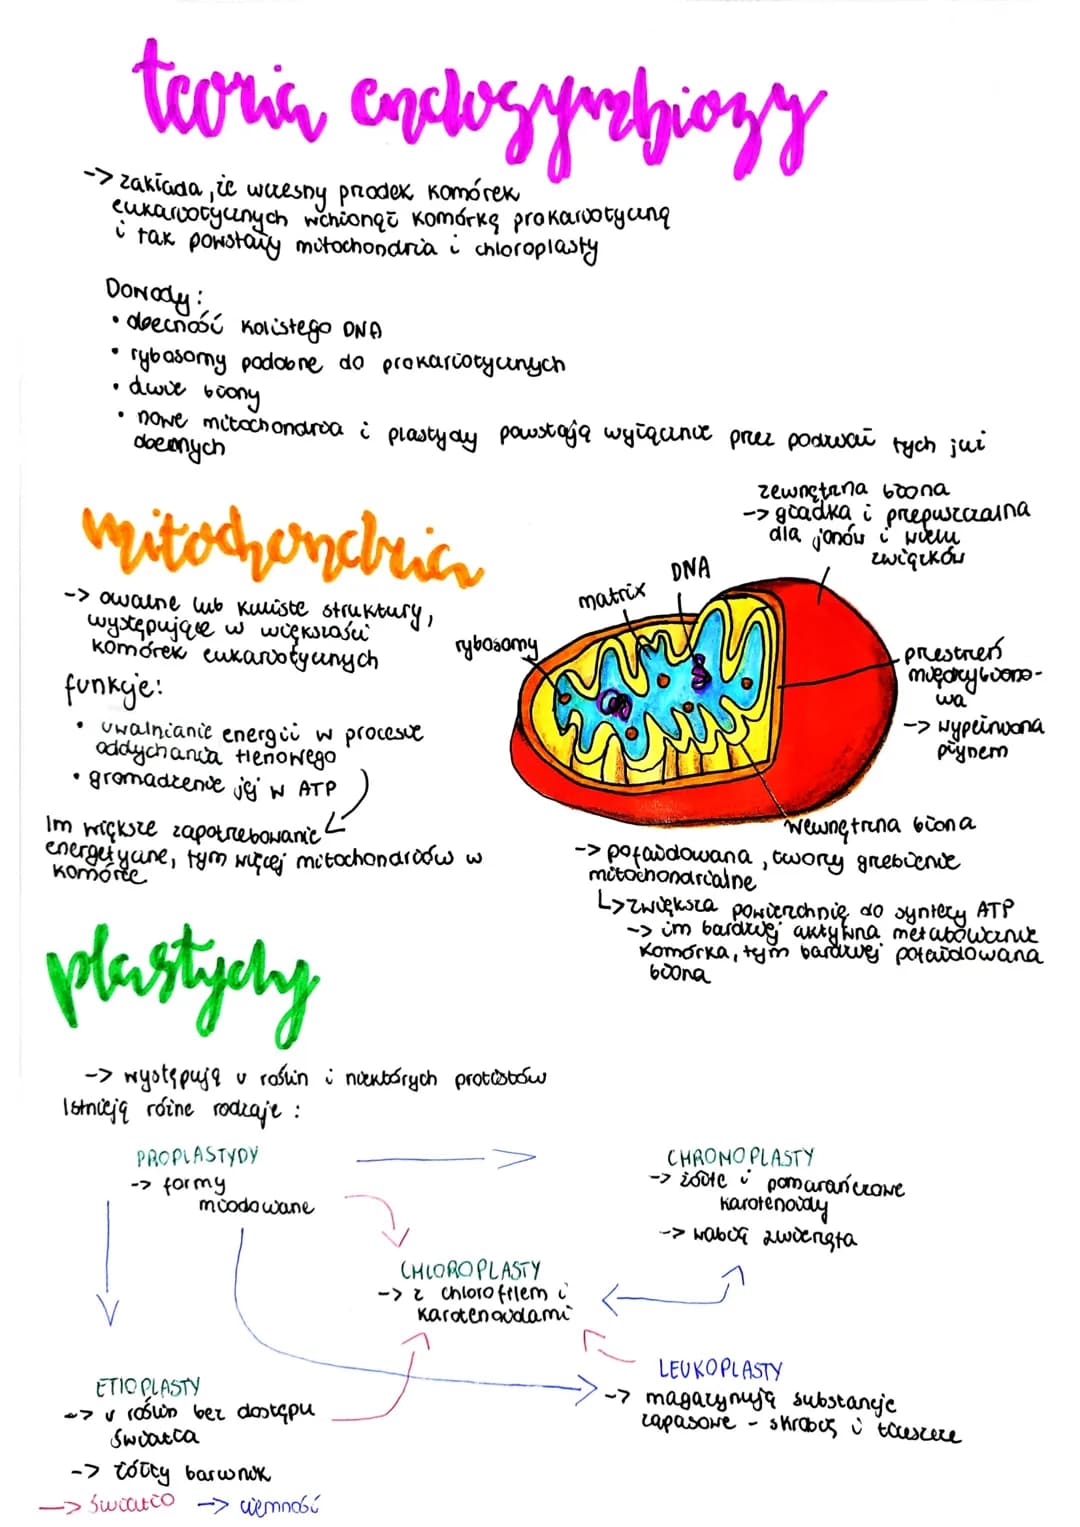 teoria endosymbiozy
-> zakłada, że wczesny przodek komórek
eukariotycznych wchłonął komórkę prokariotyczną
i tak powstały mitochondria i chloroplasty
Dowody:
• obecność kolistego DNA
• rybosomy podobne do prokariotycznych
• dwie błony
• nowe mitochondria i plastydy powstają wyłącznie przez podział tych już
obecnych
zewnętrzna błona
-> gładka i przepuszczalna
dla jonów i wielu
związków
mitochondria
-> owalne lub kuliste struktury,
występujące w większości
komórek eukariotycznych
funkcje:
• uwalnianie energii w procesie
oddychania tlenowego
• gromadzenie jej w ATP
Im większe zapotrzebowanie
energetyczne, tym więcej mitochondriów w
komórce
DNA
matrix
rybosomy
przestrzeń
międzybłono-
wa
-> wypełniona
płynem
wewnętrzna błona
-> pofałdowana, tworzy grzebienie
mitochondrialne
↳> zwiększa powierzchnię do syntezy ATP
-> im bardziej aktywna metabolicznie
komórka, tym bardziej pofałdowana
błona
plastydy
-> występują u roślin i niektórych protistów
Istnieją różne rodzaje:
PROPLASTYDY
-> formy
młodowane
CHROMOPLASTY
-> żółte i pomarańczowe
karotenoidy
-> wabią zwierzęta
CHLOROPLASTY
-> z chlorofilem i
karotenoidami
ETIOPLASTY
-> u roślin bez dostępu
światła
-> żółty barwnik
LEUKOPLASTY
-> magazynują substancje
zapasowe - skrobię i tłuszcze
-> światło -> ciemność